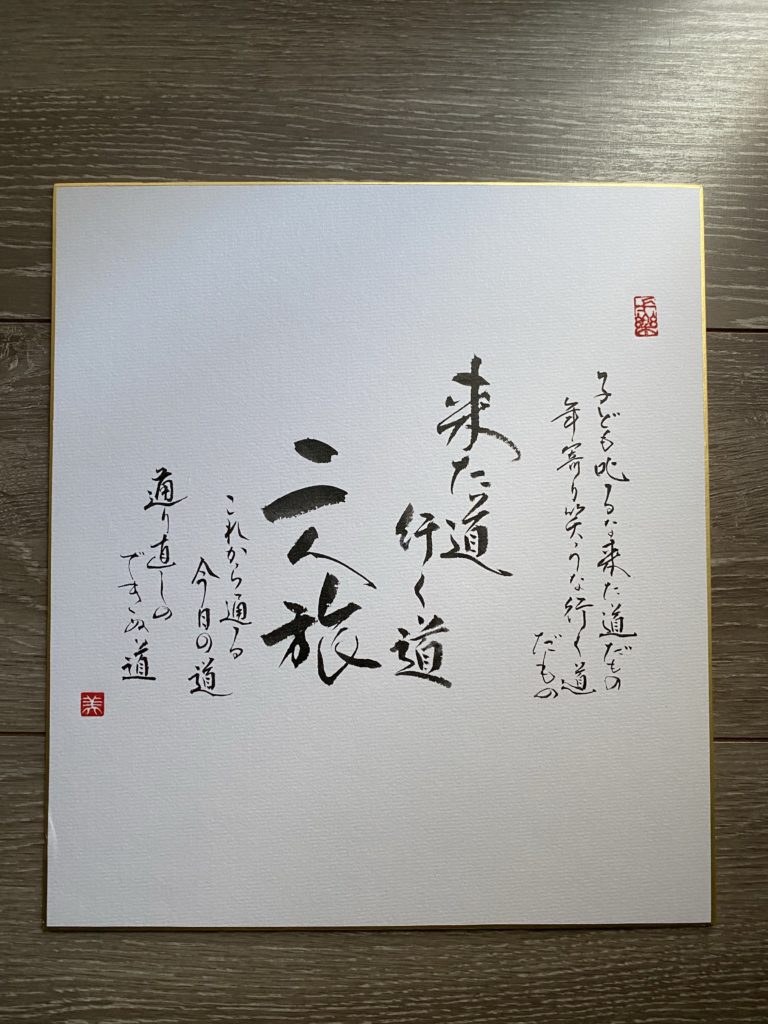 子ども叱るな来た道だもの
年寄り笑うな行く道
だもの
来た道
行く道
二人旅
これから通る
今日の道
通り直しの
できぬ道
美